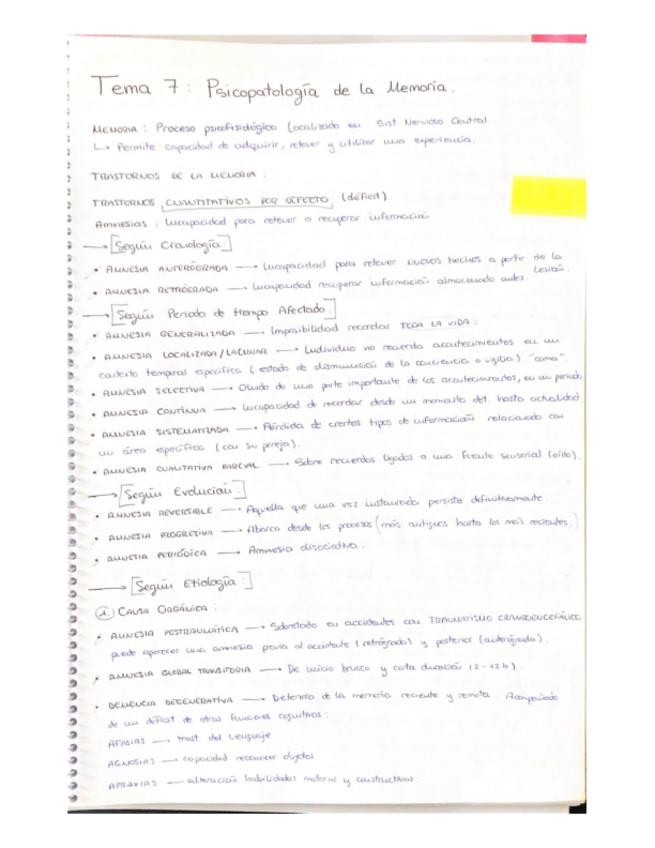 Tema 7: Psicopatología de la Memoria.
MEMORIA: Proceso psicofisiológico localizado en Sist Nervioso Central
↳ Permite capacidad de adquirir, retener y utilizar una experiencia.
TRASTORNOS DE LA MEMORIA:
TRASTORNOS CUANTITATIVOS POR DEFECTO (déficit)
Amnesias: Incapacidad para retener o recuperar información
→ Según Cronología:
• AMNESIA ANTERÓGRADA → Incapacidad para retener NUEVOS hechos a partir de la
lesión.
• AMNESIA RETRÓGRADA → Incapacidad recuperar información almacenada antes
→ Según Periodo de tiempo Afectado:
• AMNESIA GENERALIZADA → Imposibilidad recordar TODA LA VIDA.
• AMNESIA LOCALIZADA/LACUNAR → Individuo no recuerda acontecimientos en un
contexto temporal específico (estado de disminución de la conciencia o vigilia) "coma".
• AMNESIA SELECTIVA → Olvido de una parte importante de los acontecimientos, en un periodo
• AMNESIA CONTÍNUA → Incapacidad de recordar desde un momento det. hasta actualidad
• AMNESIA SISTEMATIZADA → Pérdida de ciertos tipos de información relacionado con
un área específica (con su pareja).
• AMNESIA CUALITATIVA PARCIAL → Sobre recuerdos ligados a una fuente sensorial (oído).
→ Según Evolución:
• AMNESIA REVERSIBLE → Aquella que una vez instaurada persiste definitivamente.
• AMNESIA PROGRESIVA → Abarca desde los procesos (más antiguos hasta los más recientes)
• AMNESIA PERIÓDICA → Amnesia disociativa.
→ Según Etiología:
1. CAUSA ORGÁNICA:
• AMNESIA POSTRAUMÁTICA → Sobretodo en accidentes con TRAUMATISMO CRANEOENCEFÁLICO
puede aparecer una amnesia previa al accidente (retrógrada) y posterior (anterógrada).
• AMNESIA GLOBAL TRANSITORIA → De inicio brusco y corta duración (2-12h)
• DEMENCIA DEGENERATIVA → Deterioro de la memoria reciente y remota. Acompañado
de un déficit de otras funciones cognitivas:
AFASIAS → trast. del Lenguaje
AGNOSIAS → capacidad reconocer objetos
APRAXIAS → alteración habilidades motoras y constructivas